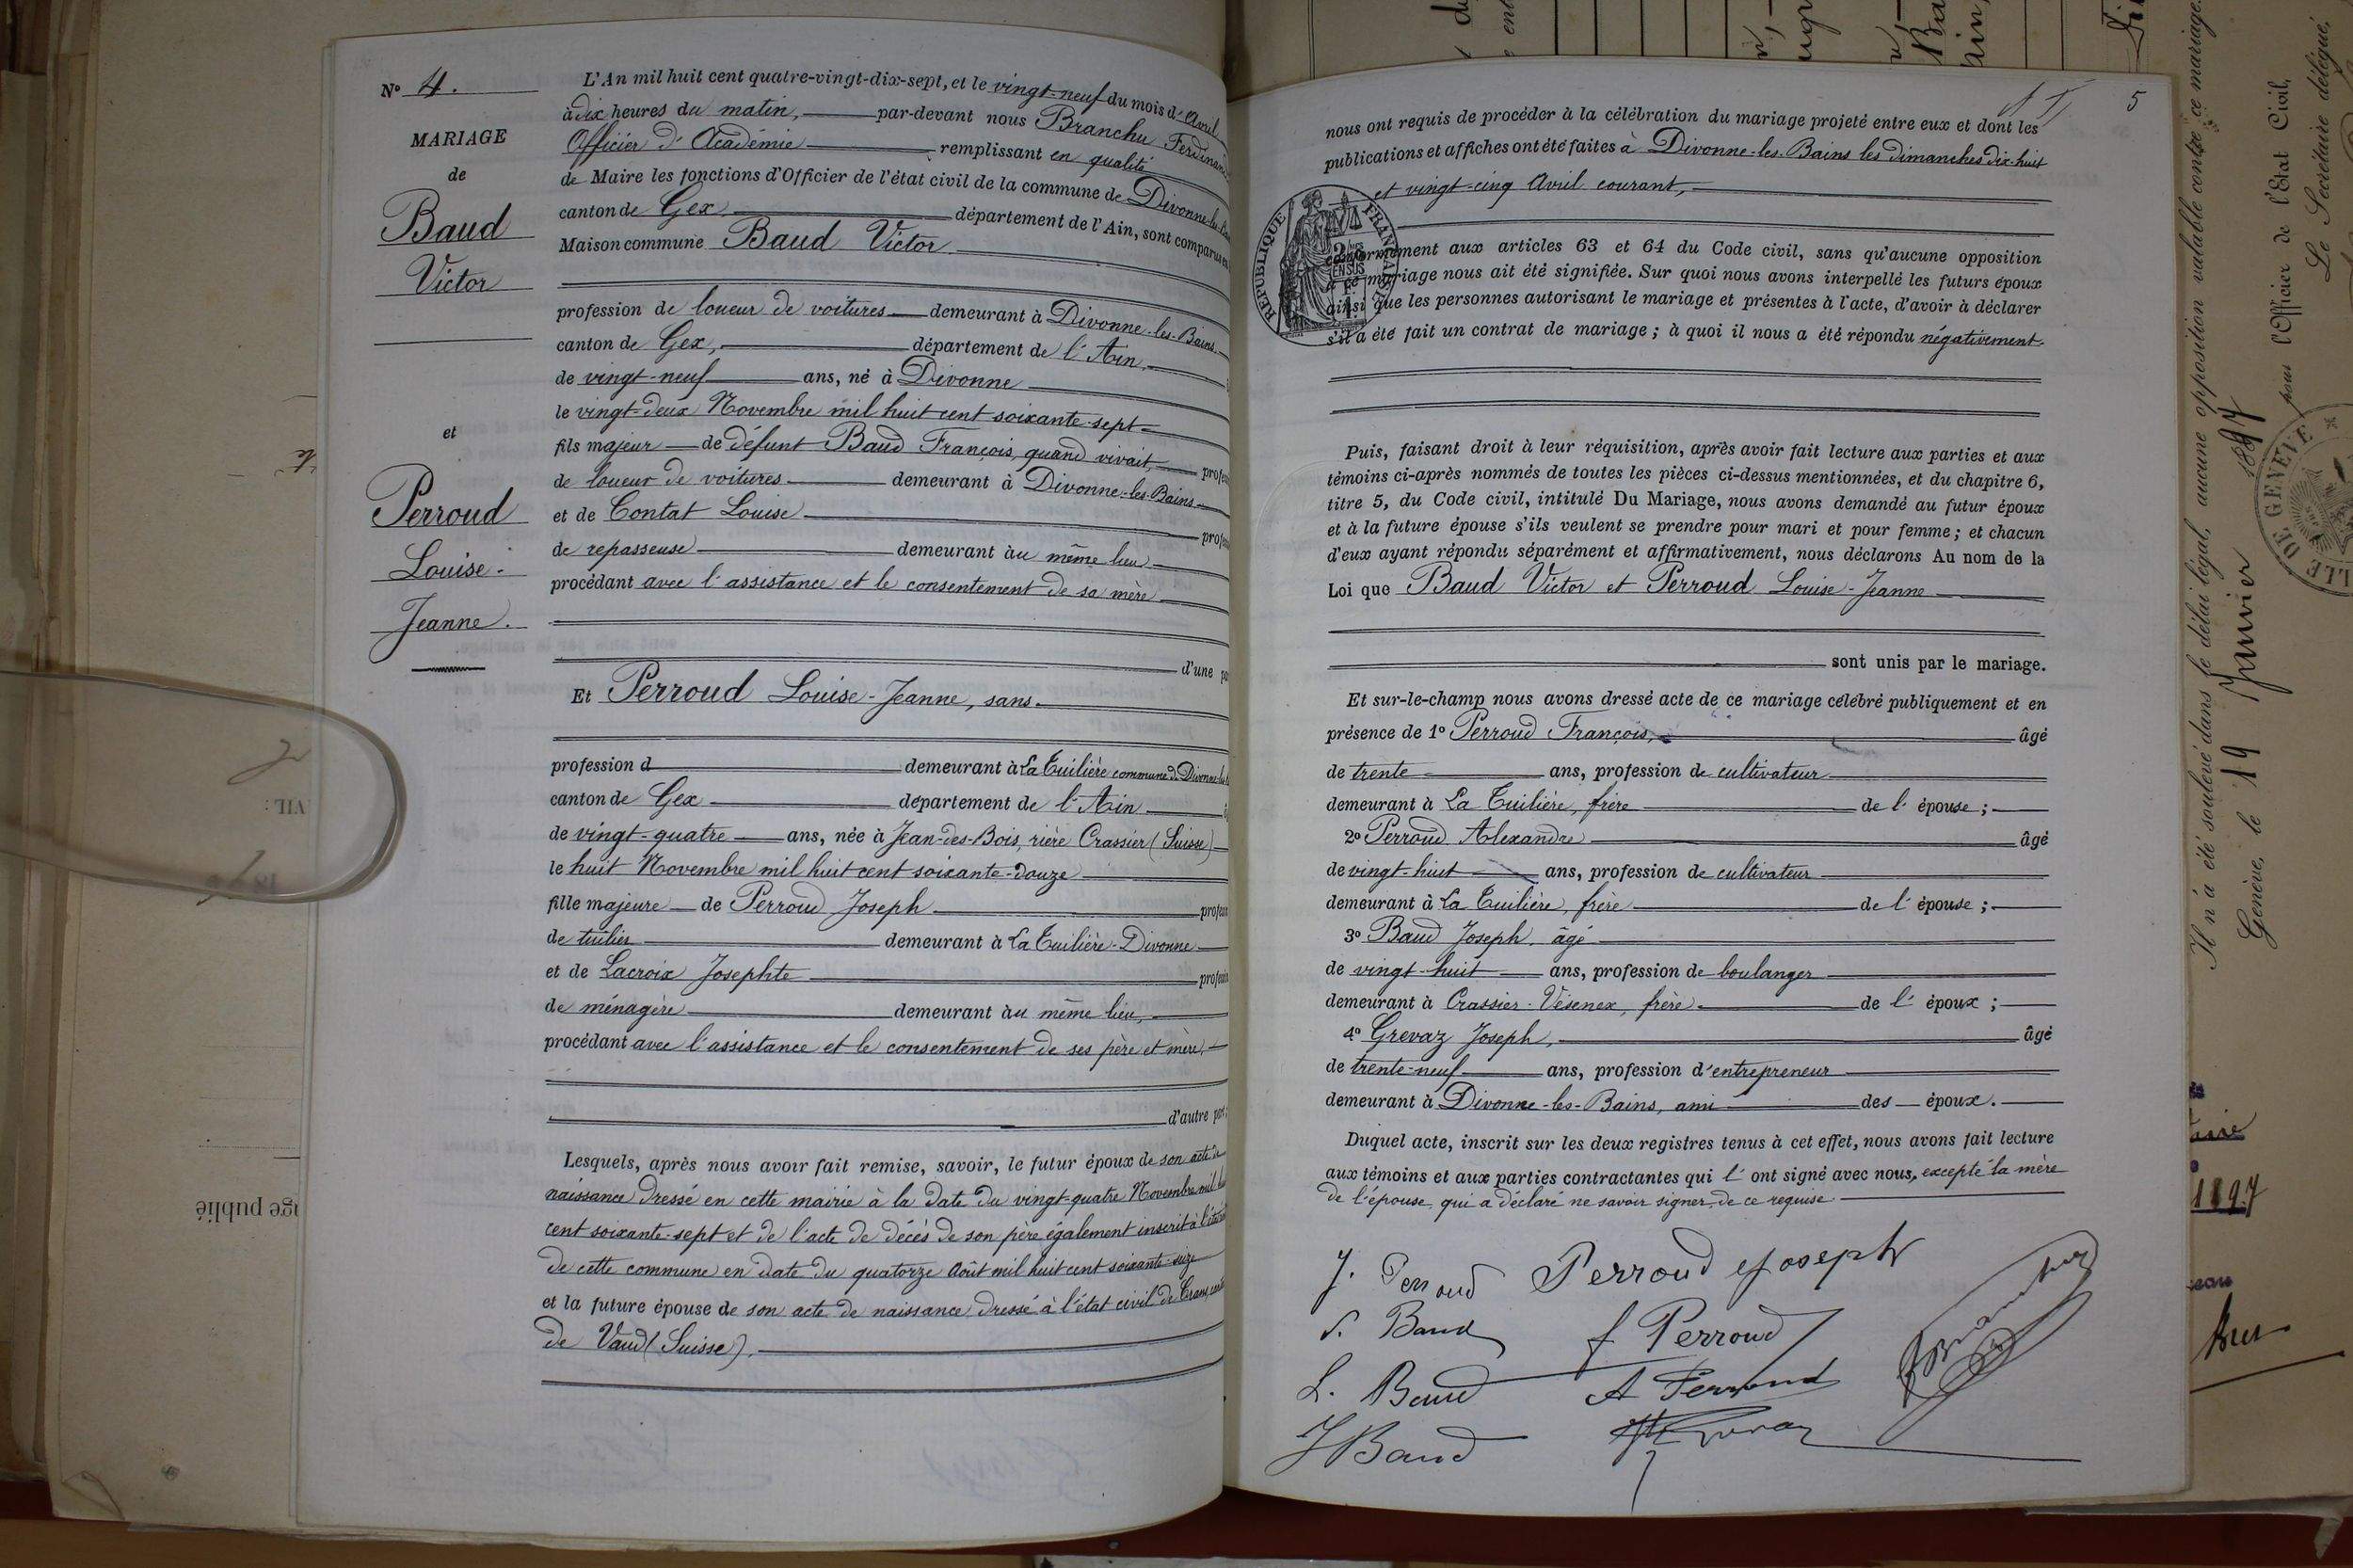 N° 4.
MARIAGE
de
Baud
Victor
et
Perroud
Louise-
Jeanne.
L'An mil huit cent quatre-vingt-dix-sept, et le vingt-neuf du mois d'Avril
à dix heures du matin, par-devant nous Branchu Ferdinand
Officier d'Académie remplissant en qualité
de Maire les fonctions d'Officier de l'état civil de la commune de Divonne-les-Bains
canton de Gex, département de l'Ain, sont comparus en
Maison commune Baud Victor
profession de loueur de voitures demeurant à Divonne-les-Bains
canton de Gex, département de l'Ain,
de vingt-neuf ans, né à Divonne
le vingt-deux Novembre mil huit cent soixante-sept
fils majeur de défunt Baud François, quand vivait, profes
de loueur de voitures demeurant à Divonne-les-Bains
et de Contat Louise profes
de repasseuse demeurant àu même lieu
procédant avec l'assistance et le consentement de sa mère
d'une pa
Et Perroud Louise-Jeanne, sans
profession d demeurant à La Tuilière commune de Divonne-les-B
canton de Gex département de l'Ain
de vingt-quatre ans, née à Jean-des-Bois, rière Crassier (Suisse)
le huit Novembre mil huit cent soixante-douze
fille majeure de Perroud Joseph profes
de tuilier demeurant à La Tuilière-Divonne
et de Lacroix Josephte profes
de ménagère demeurant àu même lieu,
procédant avec l'assistance et le consentement de ses père et mère,
d'autre par
Lesquels, après nous avoir fait remise, savoir, le futur époux de son acte de
naissance dressé en cette mairie à la date du vingt-quatre Novembre mil hui
cent soixante-sept et de l'acte de décès de son père également inscrit à l'état
de cette commune en date du quatorze Août mil huit cent soixante-seize
et la future épouse de son acte de naissance dressé à l'état civil de Crans,
de Vaud (Suisse).
5
nous ont requis de procéder à la célébration du mariage projeté entre eux et dont les
publications et affiches ont été faites à Divonne-les-Bains les dimanches dix-huit
et vingt-cinq Avril courant,
RÉPUBLIQUE FRANÇAISE
conformément aux articles 63 et 64 du Code civil, sans qu'aucune opposition
à ce mariage nous ait été signifiée. Sur quoi nous avons interpellé les futurs époux
ainsi que les personnes autorisant le mariage et présentes à l'acte, d'avoir à déclarer
s'il a été fait un contrat de mariage ; à quoi il nous a été répondu négativement.
Puis, faisant droit à leur réquisition, après avoir fait lecture aux parties et aux
témoins ci-après nommés de toutes les pièces ci-dessus mentionnées, et du chapitre 6,
titre 5, du Code civil, intitulé Du Mariage, nous avons demandé au futur époux
et à la future épouse s'ils veulent se prendre pour mari et pour femme ; et chacun
d'eux ayant répondu séparément et affirmativement, nous déclarons Au nom de la
Loi que Baud Victor et Perroud Louise-Jeanne
sont unis par le mariage.
Et sur-le-champ nous avons dressé acte de ce mariage célébré publiquement et en
présence de 1° Perroud François, âgé
de trente ans, profession de cultivateur
demeurant à La Tuilière, frère de l'épouse ;
2° Perroud Alexandre âgé
de vingt-huit ans, profession de cultivateur
demeurant à La Tuilière, frère de l'épouse ;
3° Baud Joseph, âgé
de vingt-huit ans, profession de boulanger
demeurant à Crassier-Vésenex, frère de l'époux ;
4° Grevaz Joseph, âgé
de trente-neuf ans, profession d'entrepreneur
demeurant à Divonne-les-Bains, ami des époux.
Duquel acte, inscrit sur les deux registres tenus à cet effet, nous avons fait lecture
aux témoins et aux parties contractantes qui l'ont signé avec nous, excepté la mère
de l'épouse qui a déclaré ne savoir signer, de ce requise.
J. Perroud Perroud Joseph
Baud f Perroud
L. Baud A Perroud
J Baud
Il n'a été soulevé dans le délai légal, aucune opposition valable contre ce mariage.
Genève, le 19 Janvier 1897
pour l'Officier de l'État Civil,
Le Secrétaire délégué,
VILLE DE GENÈVE
1897